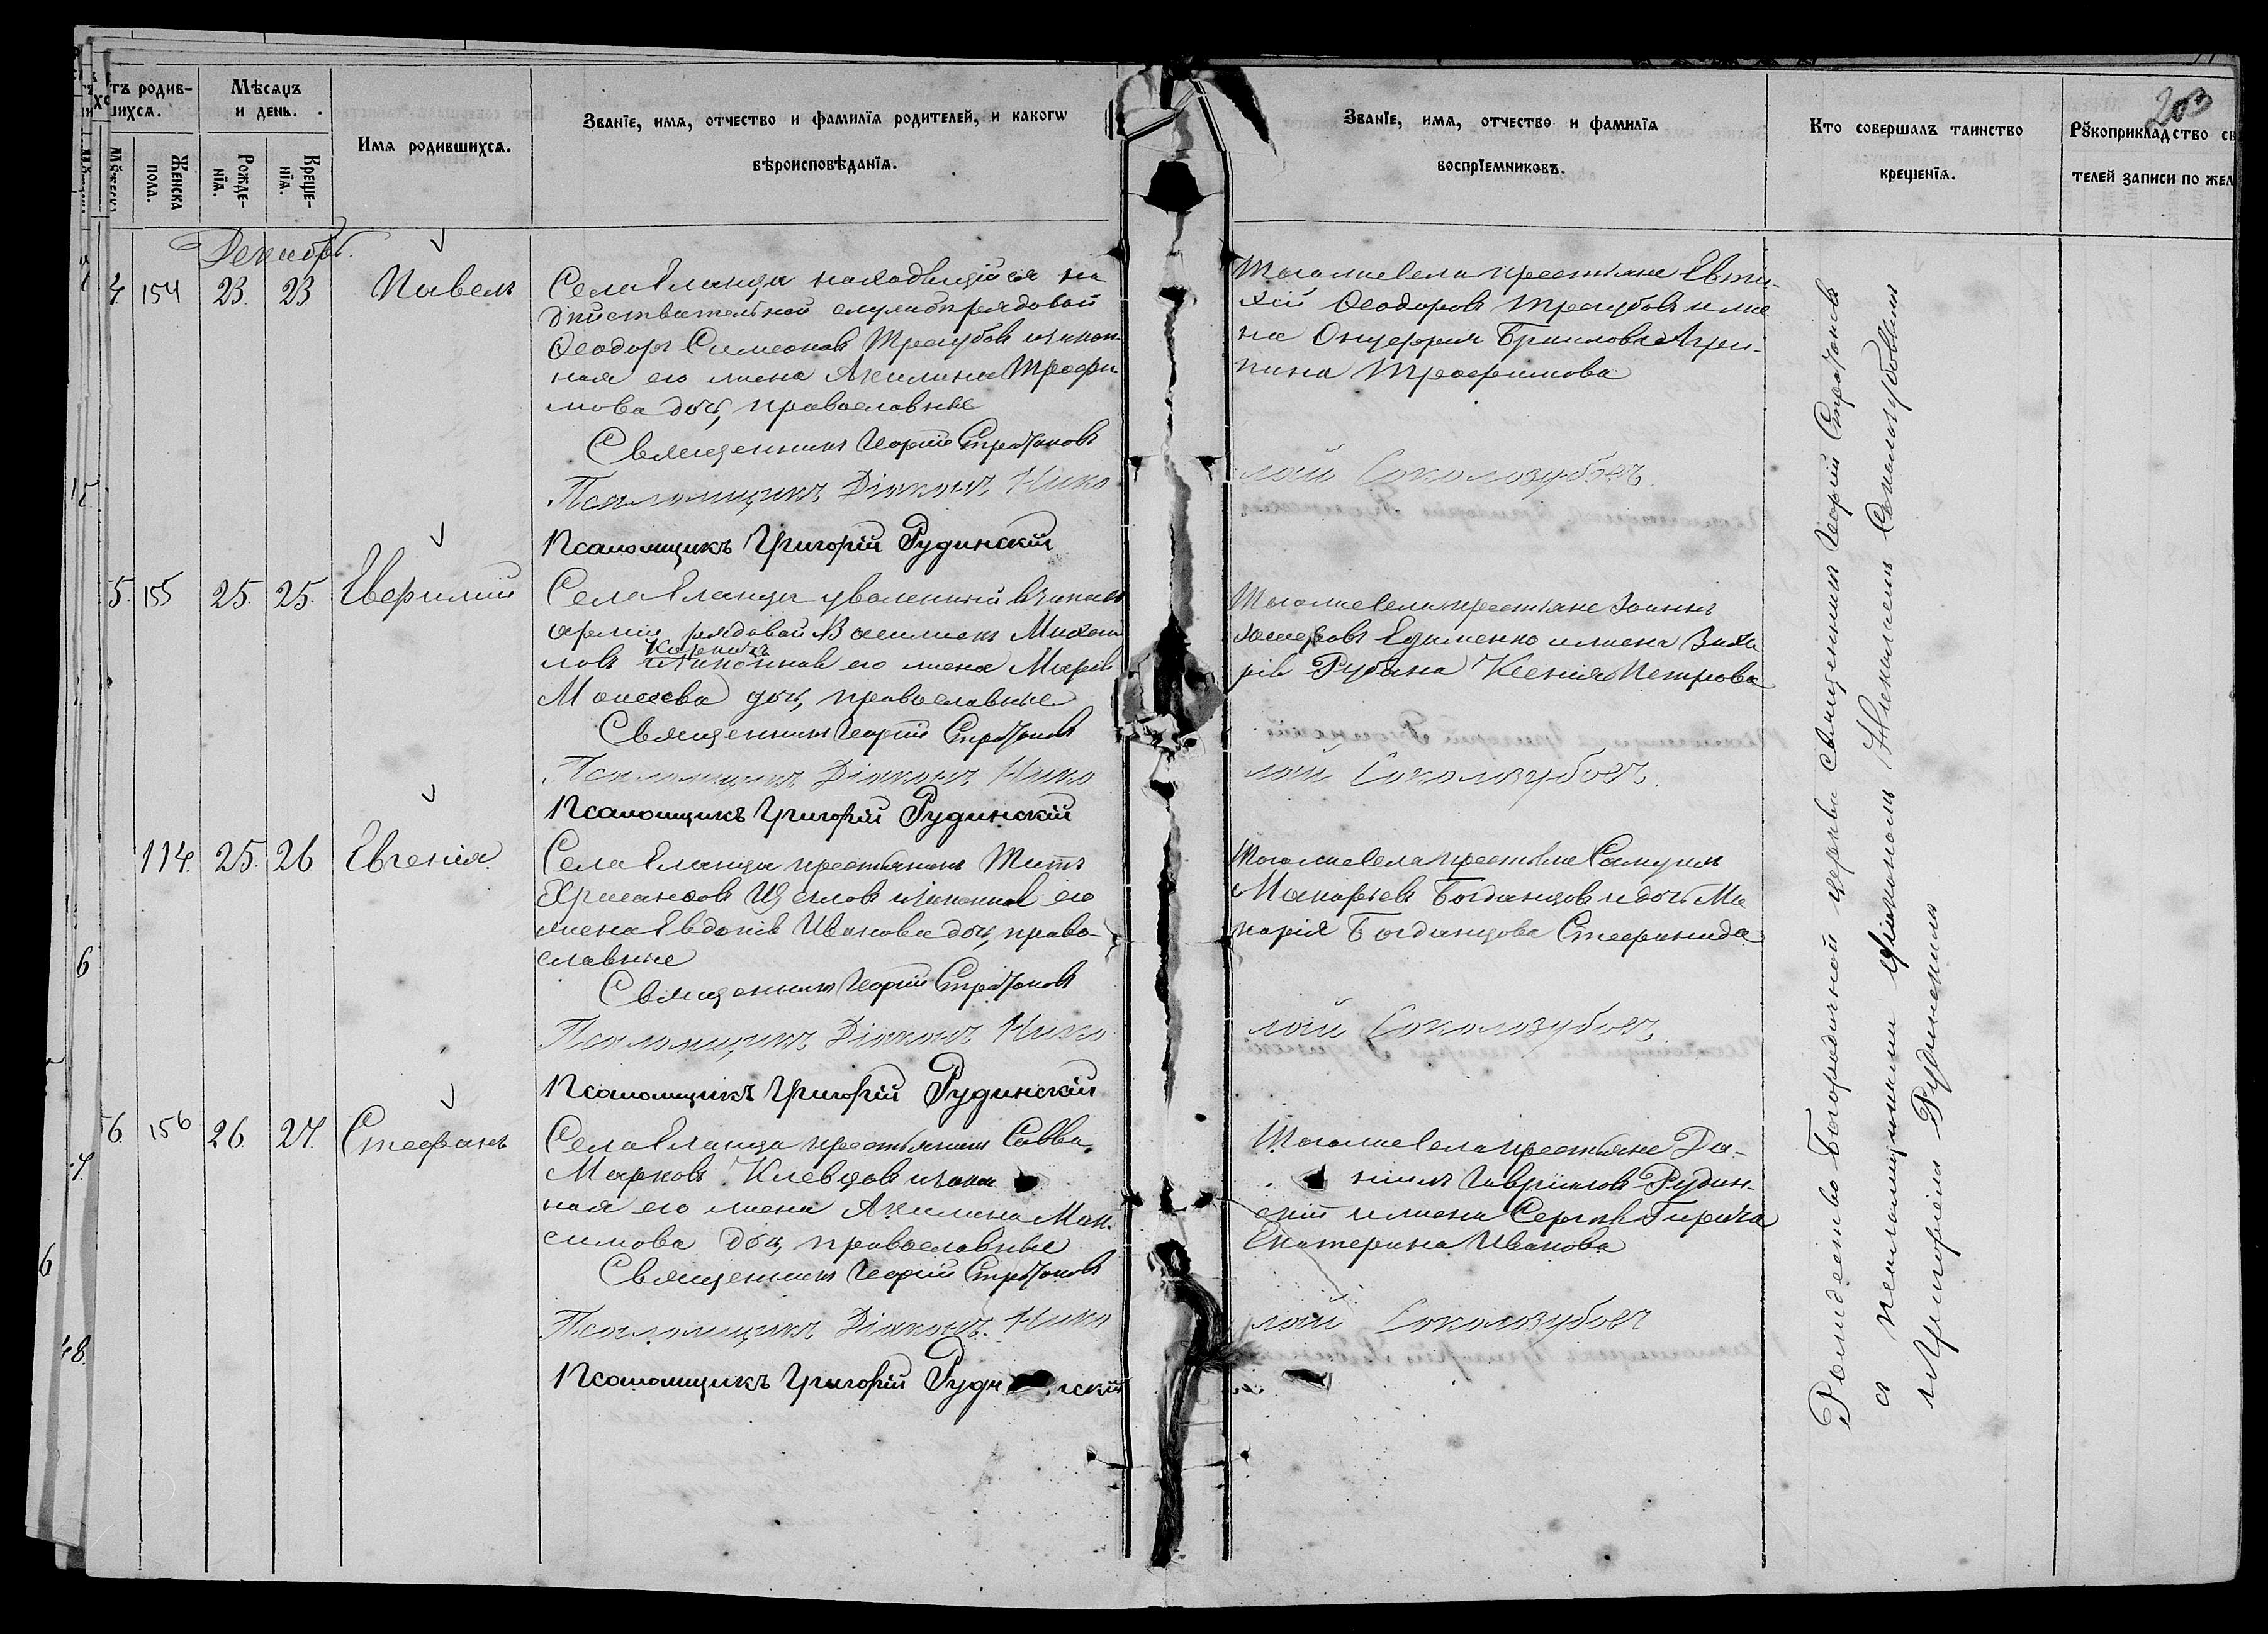 203
тъ родив-
шихся.
Мѣсяцъ
и день.
Имя родившихся.
Званїе, имя, отчество и фамилїя родителей, и какогѡ
вѣроисповѣданїя.
Женска
пола.
Рожде-
нїя.
Креще-
нїя.
Званїе, имя, отчество и фамилїя
воспрїемниковъ.
Кто совершалъ таинство
крещенїя.
Рꙋкоприкладство св
телей записи по жел
Декабрь.
4 154 23. 23 Павелъ
Села Еланца находящійся на
дѣйствительной службѣ рядовой
Ѳеодоръ Симеоновъ Трегубовъ и закон-
ная его жена Акилина Трофи
мова дочь, православные
Священникъ Георгій
Псаломщикъ Діаконъ Нико
Псаломщикъ Григорій Рудинскій
Того же села крестьяне Евти-
хій Ѳеодоровъ Трегубовъ и же
на Онуфрія Агри-
пина Трофимова
лай Соколозубовъ.
5. 155 25. 25. Евфимій
Села Еланца уволенный въ запасъ
арміи рядовой Василій Михаи
ловъ и законная его жена Марія
Моисеева дочь, православные
Священникъ Георгій
Псаломщикъ Діаконъ Нико
Псаломщикъ Григорій Рудинскій
Того же села крестьяне Іоаннъ
Ефименко и жена Заха
рія Рубана Ксенія Петрова
лай Соколозубовъ.
114. 25. 26 Евгенія
Села Еланца крестьянинъ Титъ
и законная его
жена Евдокія Иванова дочь, право-
славные
Священникъ Георгій
Псаломщикъ Діаконъ Нико
Псаломщикъ Григорій Рудинскій
Того же села крестьяне Самуилъ
Макарьевъ Богданцовъ и дочь Ма
карія Богданцова Стефанида
лай Соколозубовъ.
56. 156 26. 27. Стефанъ
Села Еланца крестьянинъ Савва
Марковъ Клевцовъ и закон
ная его жена Акилина Мак-
симова дочь, православные
Священникъ Георгій
Псаломщикъ Діаконъ Нико
Псаломщикъ Григорій Руди нскій
Того же села крестьяне Да-
ніилъ Гавріиловъ Рудин-
скій и жена Сергія
Екатерина Иванова
лай Соколозубовъ
Рождество Богородичной церкви священникъ Георгій
съ псаломщиками діакономъ Николаемъ Соколозубовымъ
и Григоріемъ Рудинскимъ